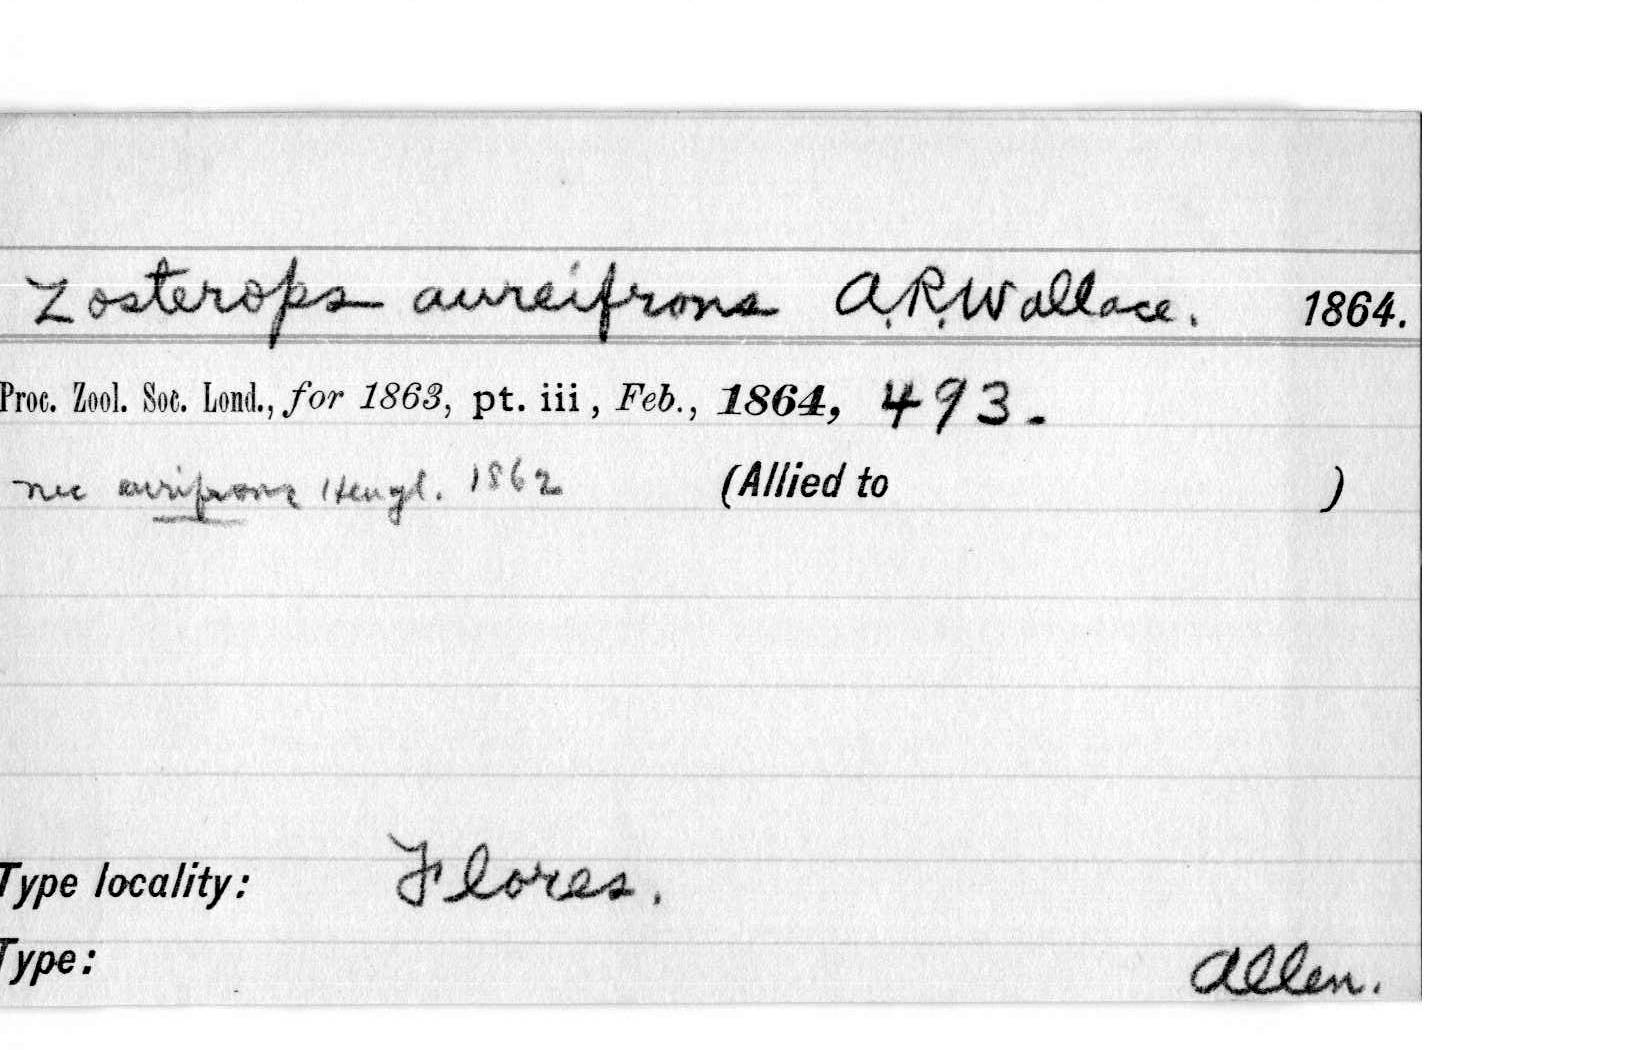 Zosterops aureifrons A.R.Wallace. 1864.
Proc. Zool. Soc. Lond., for 1863, pt. iii, Feb., 1864, 493.
nec aurifrons Heugl. 1862 (Allied to )
Type locality: Flores.
Type: Allen.